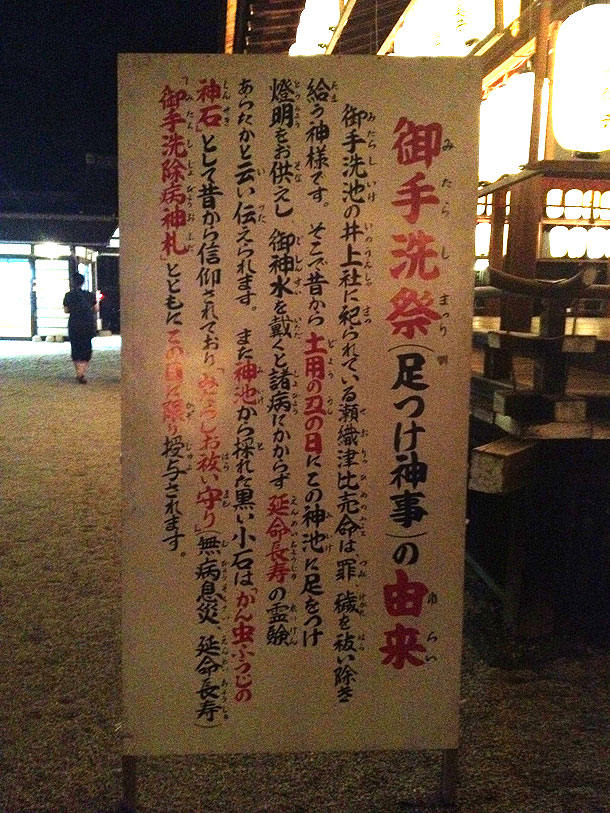 御手洗祭(足つけ神事)の由来
御手洗池の井上社に祀られている瀬織津比売命は、罪穢を祓い除き
給う神様です。そこで昔から土用の丑の日にこの神池に足をつけ
燈明をお供えし御神水を戴くと諸病にかからず延命長寿の霊験
あらたかと云い伝えられます。また神池から採れた黒い小石は「かん虫ふうじの
神石」として昔から信仰されており「みたらしお祓い守り」(無病息災、延命長寿)
「御手洗除病神札」とともにこの日に限り授与されます。